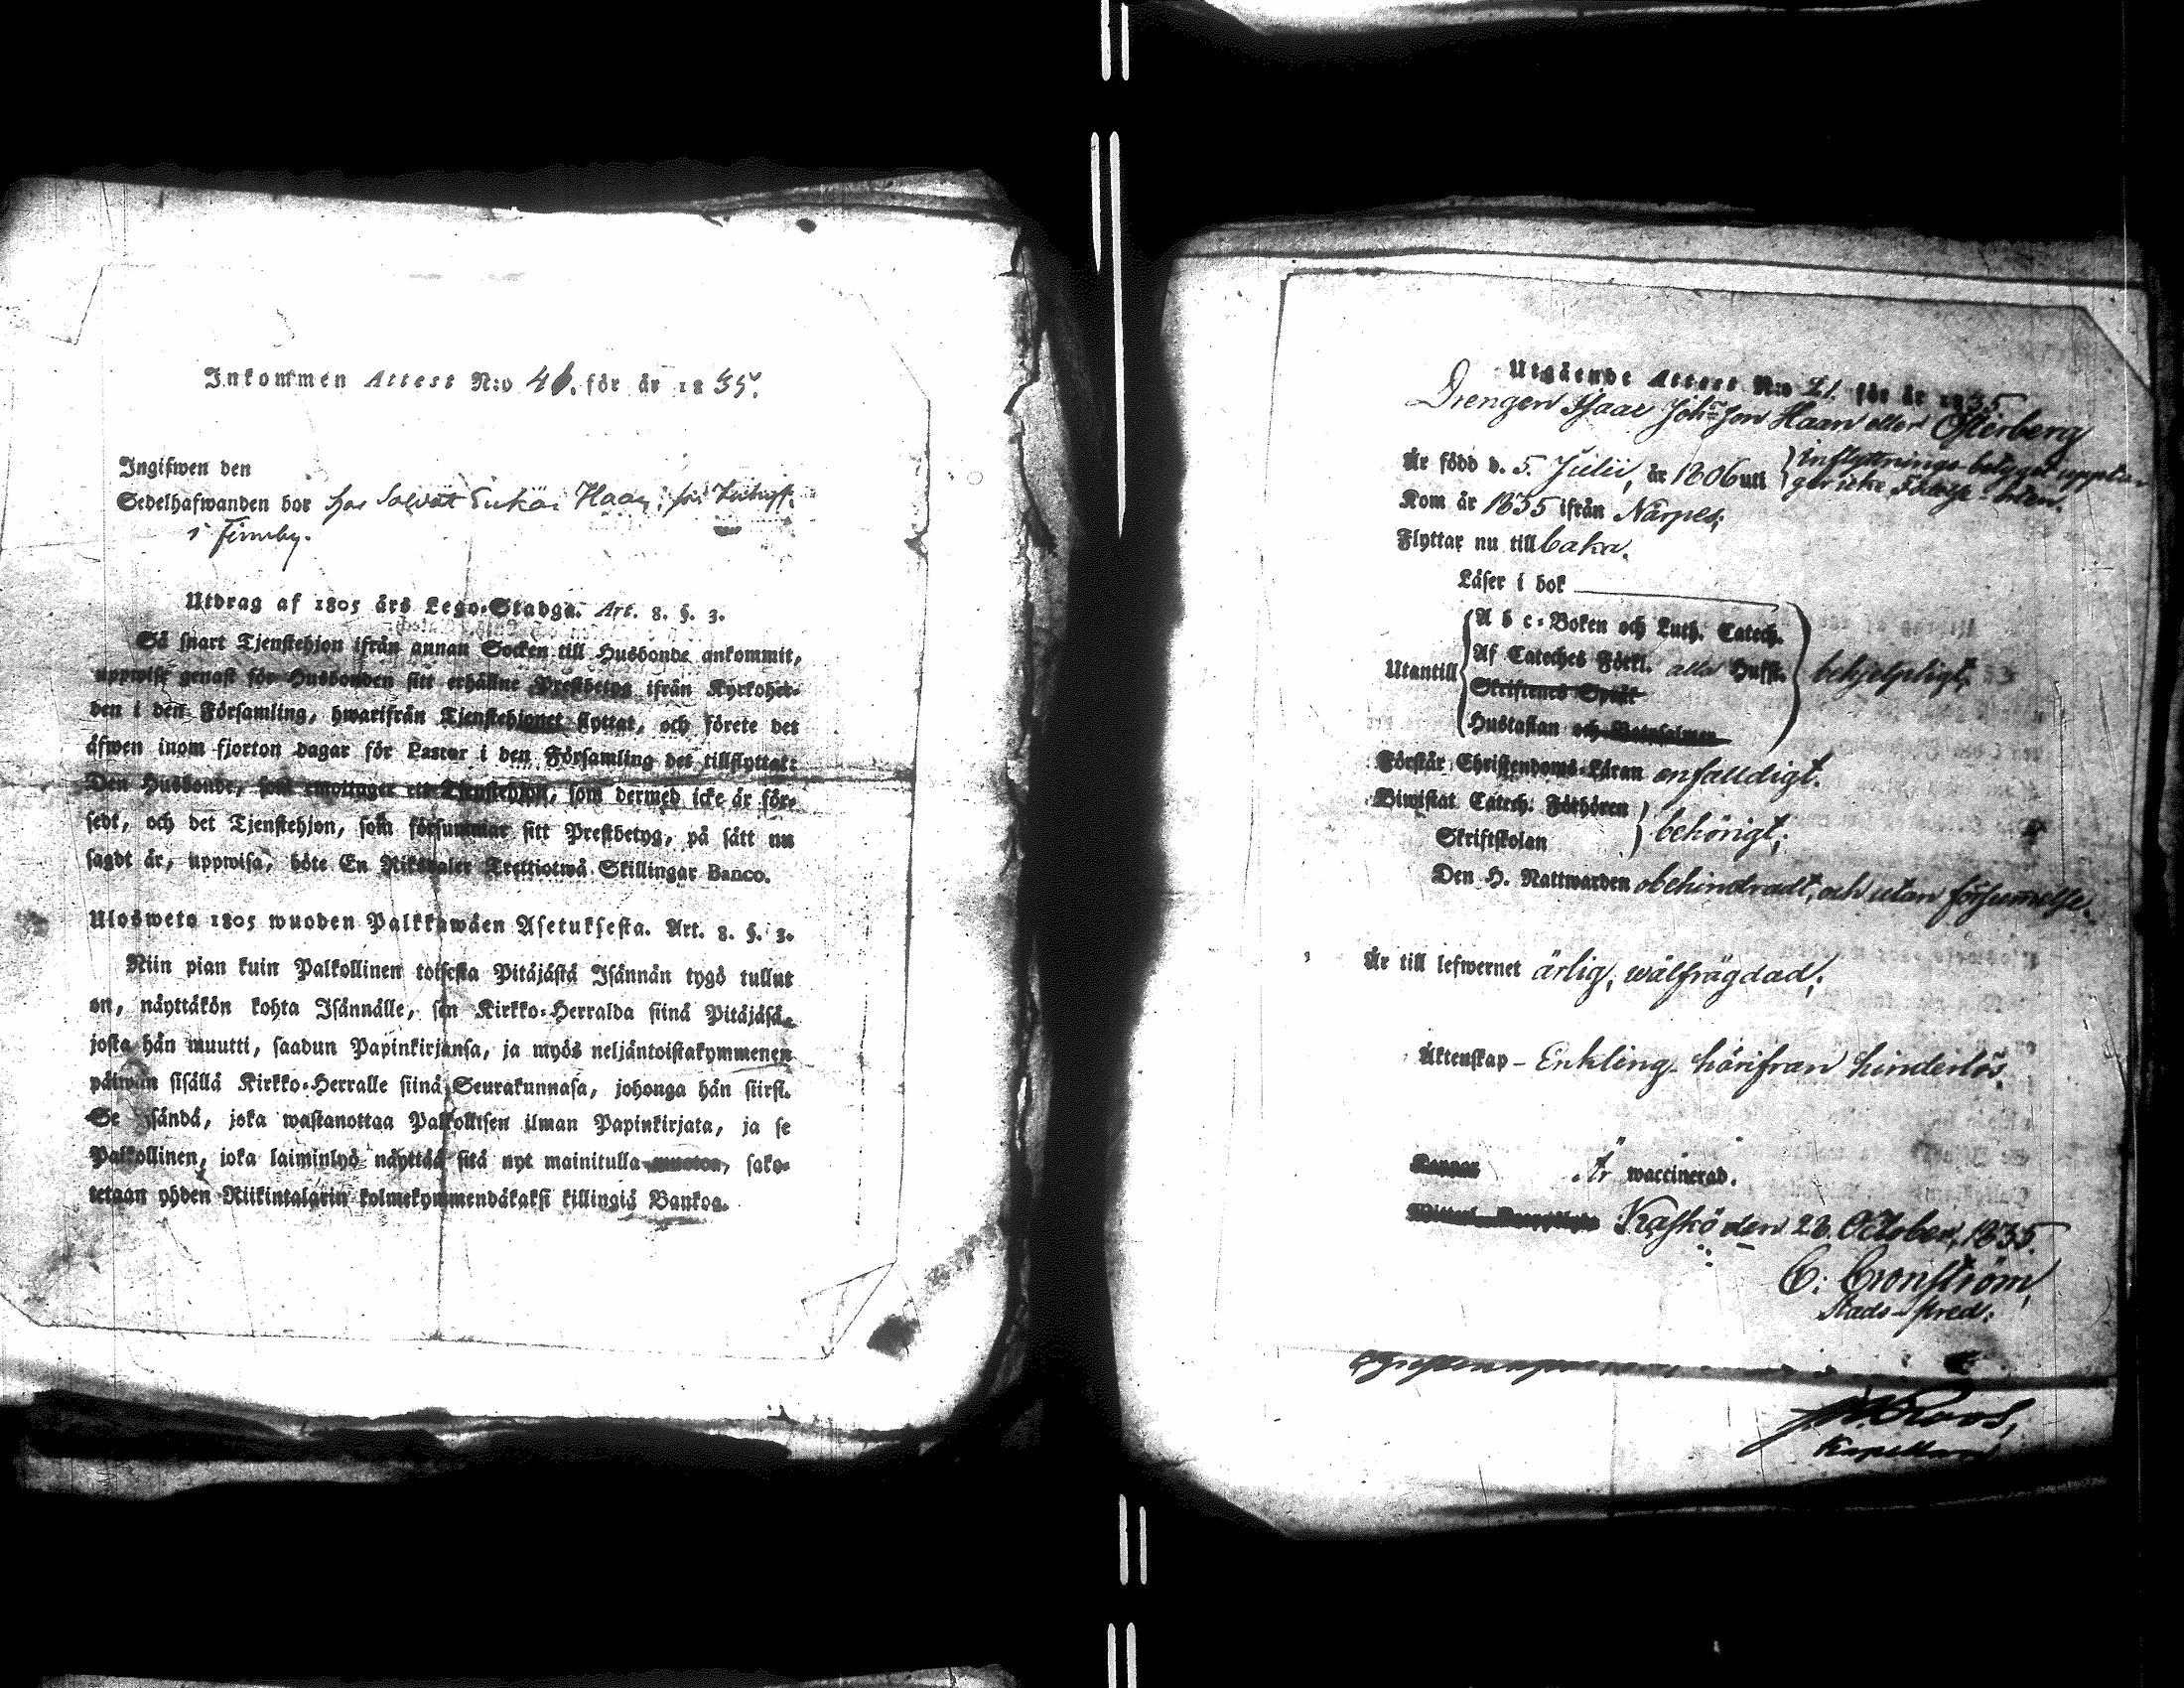 Inkommen Attest N:o 46. för år 1835.
Ingifwen den
Sedelhafwanden bor hos Haan,
i Finnby.
Utdrag af 1805 års Lego-Stadga. Art. 8. §. 3.
Så snart Tjenstehjon ifrån annan Socken till Husbonde ankommit,
uppwise genast för Husbonden sitt erhållne Prestbetyg ifrån Kyrkoher-
den i den Församling, hwarifrån Tjenstehjonet flyttat, och förete det
äfwen inom fjorton dagar för Pastor i den Församling det tillflyttat:
Den Husbonde, som emottager ett Tjenstehjon, som dermed icke är för-
sedt, och det Tjenstehjon, som försummar sitt Prestbetyg, på sätt nu
sagdt är, uppwisa, böte En Riksdaler Trettiotwå Skillingar Banco.
Ulosweto 1805 wuoden Palkkawäen Asetuksesta. Art. 8. §. 3.
Niin pian kuin Palkollinen toisesta Pitäjästä Isännän tygö tullut
on, näyttäkön kohta Isännälle, sen Kirkko-Herralda siinä Pitäjäsä,
josta hän muutti, saadun Papinkirjansa, ja myös neljäntoistakymmenen
päiwän sisällä Kirkko-Herralle siinä Seurakunnasa, johonga hän siirsi.
Se Isändä, joka wastanottaa Palkollisen ilman Papinkirjata, ja se
Palkollinen, joka laiminlyö näyttää sitä nyt mainitulla muoton, sako-
tetaan yhden Riikintalarin kolmekymmendäkaksi killingiä Bankoa.
Utgående Attest N:o 21. för år 1835
Drengen Isaac Joh:sson Haan eller Österberg
Är född d. 5. Julii, år 1806 uti } inflyttnings-betyget uppta-
ger icke födelse-orten.
Kom år 1835 ifrån Närpes;
Flyttar nu tillbaka.
Läser i bok
Utantill { A b c-Boken och Luth. Catech.
Af Cateches Förkl. alla Hufst. } behjelpligt;
Skriftenes Språk
Hustaflan och Botpsalmen
Förstår Christendoms-Läran enfalldigt.
Biwistat Catech. Förhören } behörigt;
Skriftskolan
Den H. Nattwarden obehindradt, och utan försummelse.
Är till lefwernet ärlig, wälfrägdad;
Äktenskap - Enkling. härifran hinderlös.
Är waccinerad.
Kaskö den 28. October, 1835.
C: Cronström,
Stads-pred:
Kapellan